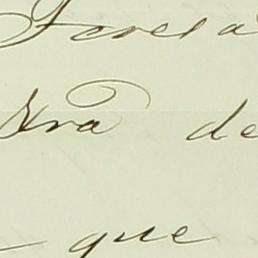 Teresa
Sra de
que